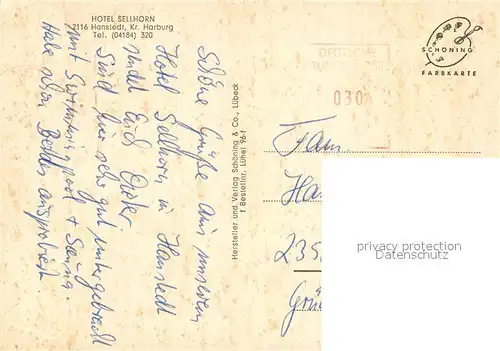 HOTEL SELLHORN
2116 Hanstedt, Kr. Harburg
Tel. (04184) 320
Schöne Grüße aus unserem
Hotel Sellhorn in Hanstedt
sendet Euch
Sind hier sehr gut untergebracht
mit Swimmingpool + Sauna.
Habe schon Beides ausprobiert.
Hersteller und Verlag Schöning & Co., Lübeck
1 Bestellnr. Lühei 96-f
DEUTSCHE
030
SCHÖNING
FARBKARTE
Fam
Ha
235
Grü
privacy protection
Datenschutz